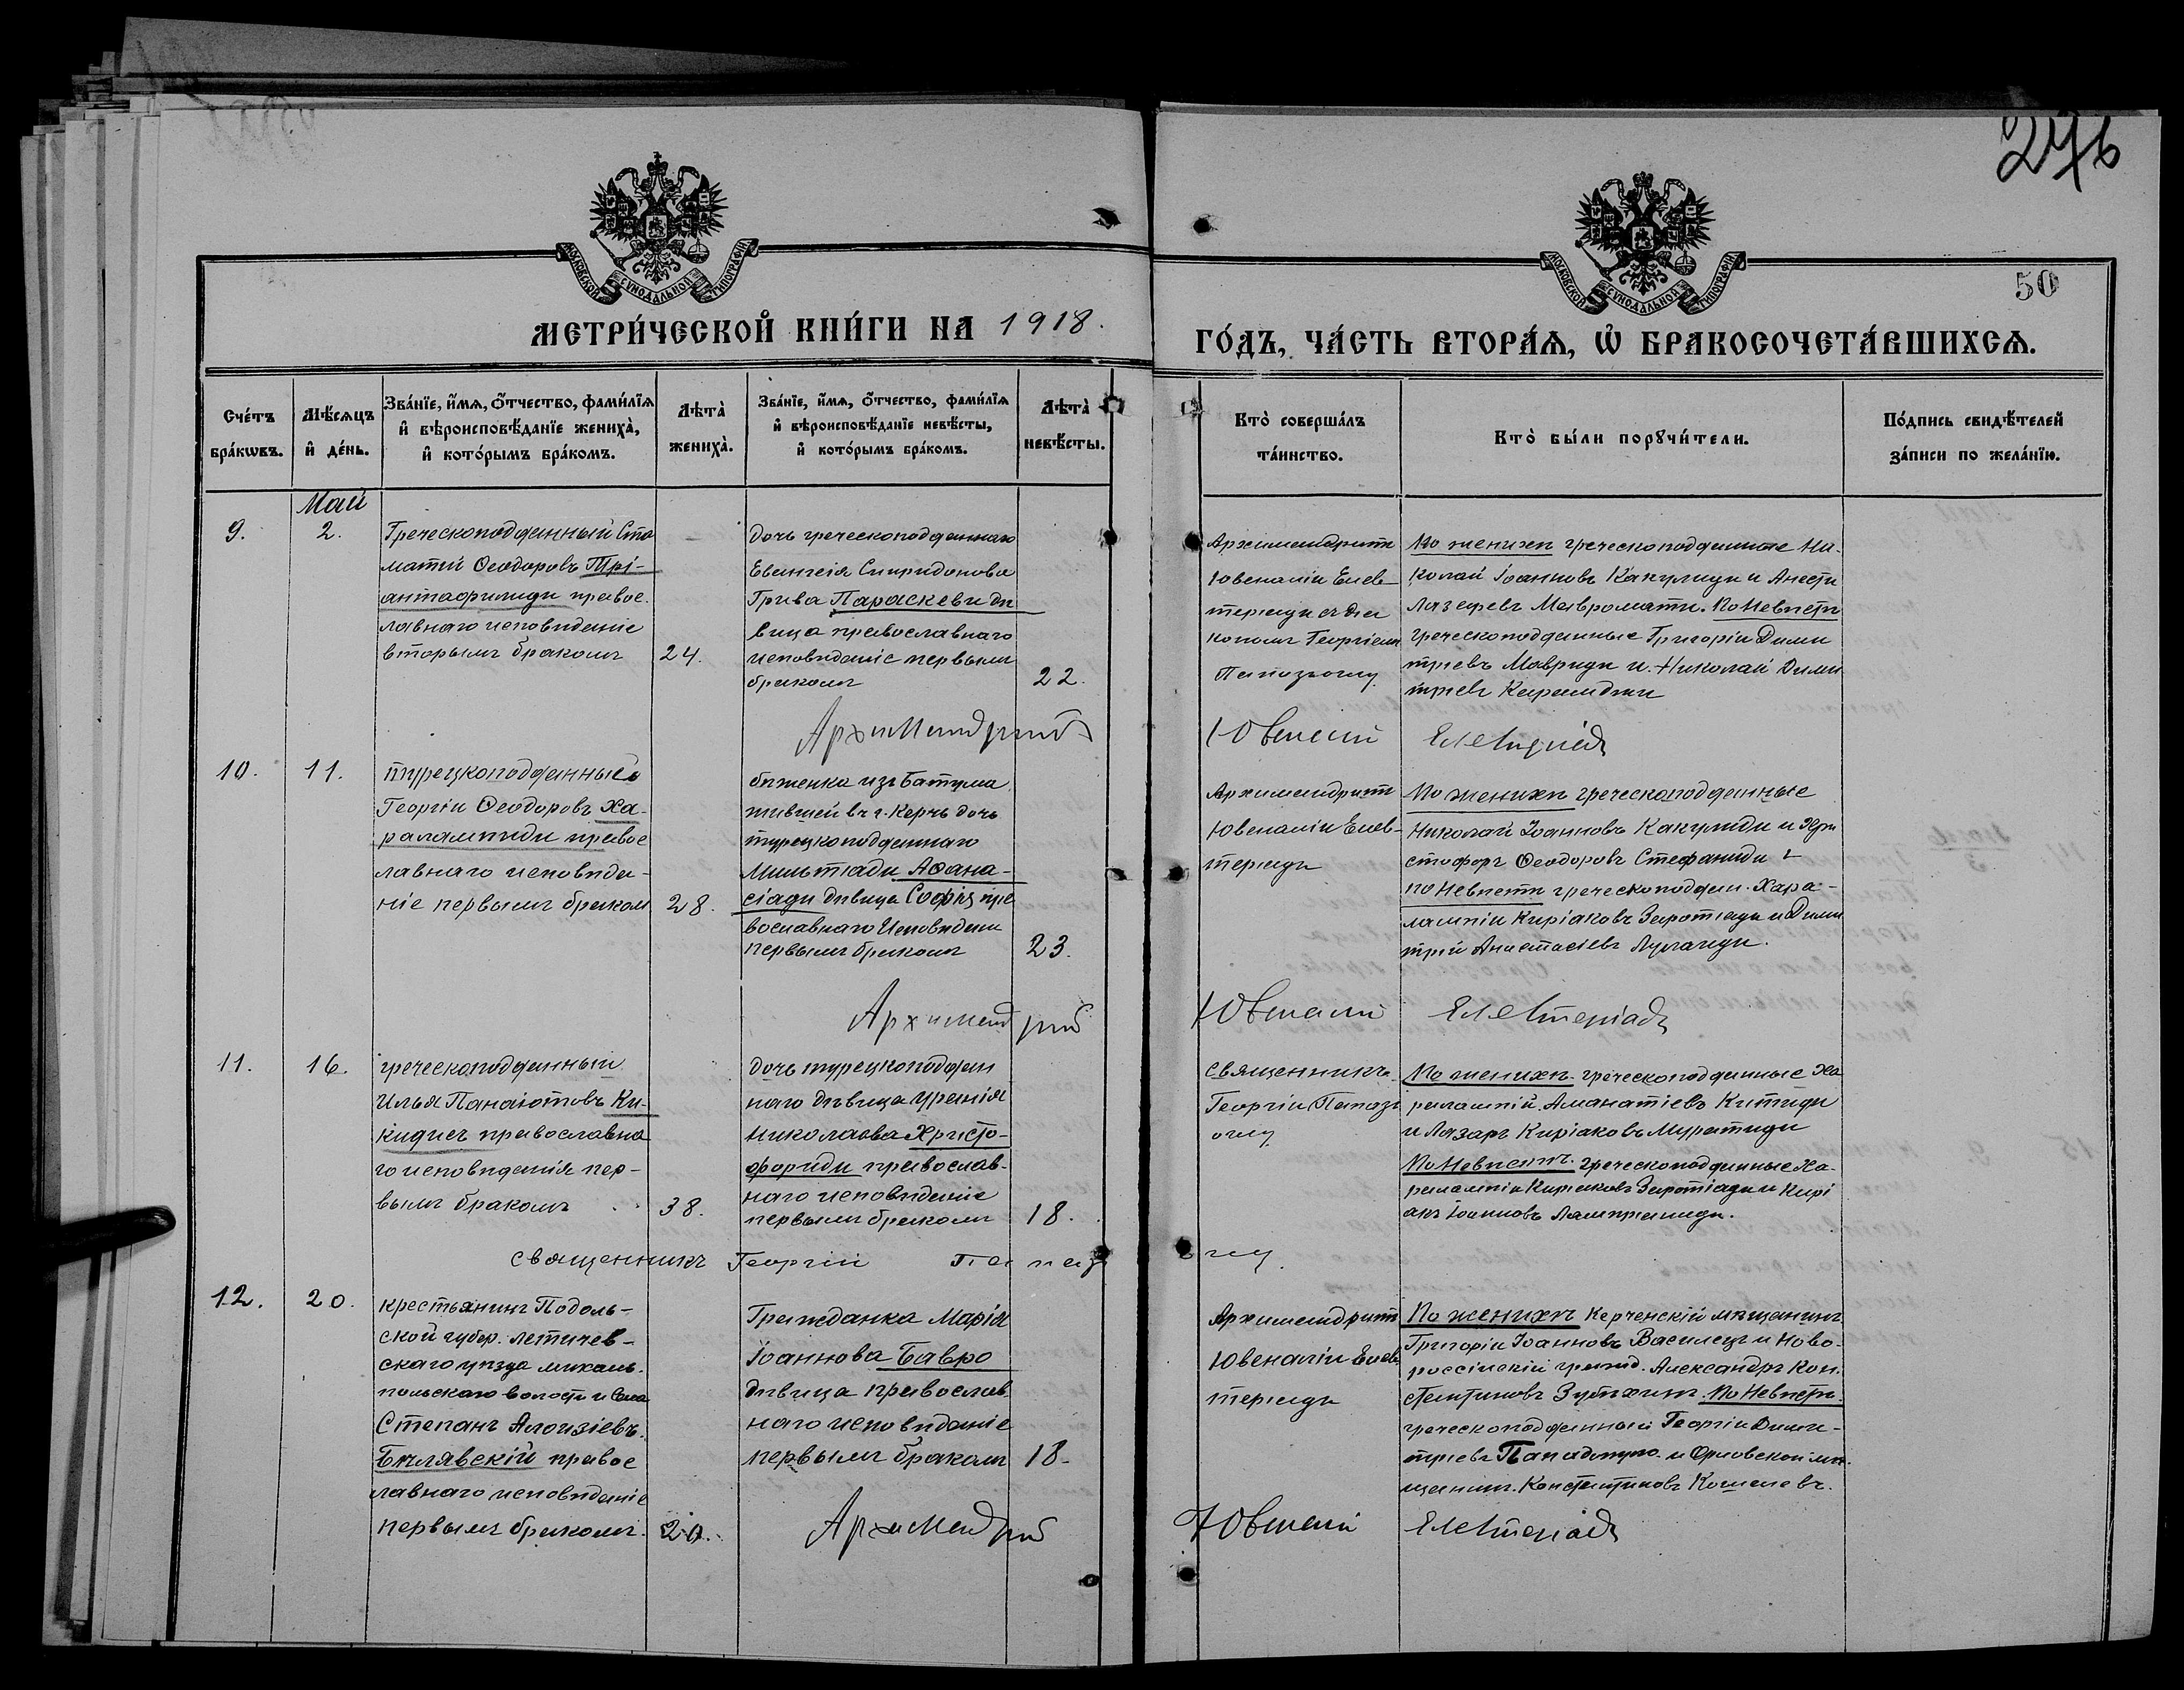 276
50
МОСКОВСКОЙ СѴНОДАЛЬНОЙ ТИПОГРАФІИ
МОСКОВСКОЙ СѴНОДАЛЬНОЙ ТИПОГРАФІИ
МЕТРИ́ЧЕСКОЙ КНИ́ГИ НА 1918.
ГО́ДЪ, ЧА́СТЬ ВТОРА́Ѧ, Ѡ҆ БРАКОСОЧЕТА́ВШИХСѦ.
Сче́тъ бра́кѡвъ.
Мѣ́сѧцъ и҆ де́нь.
Зва́нїе, и҆́мѧ, ѻ҆́тчество, фами́лїѧ и҆ вѣроисповѣ́данїе жениха̀, и҆ кото́рымъ бра́комъ.
Лѣта̀ жениха̀.
Зва́нїе, и҆́мѧ, ѻ҆́тчество, фами́лїѧ и҆ вѣроисповѣ́данїе невѣ́сты, и҆ кото́рымъ бра́комъ.
Лѣта̀ невѣ́сты.
Кто̀ соверша́лъ та́инство.
Кто̀ бы́ли порꙋчи́тели.
По́дпись свидѣ́телей за́писи по жела́нїю.
Май
9.
2.
Греческоподданный Ста
матій Ѳеодоровъ Трі-
антафилиди правос
лавнаго исповѣданіе
вторымъ бракомъ
24.
Дочь греческоподданнаго
Евангелія Спиридонова
Грива Параскеви дѣ
вица православнаго
исповѣданіе первымъ
бракомъ
22.
Архимандритъ
Ювеналій Елев
теріади съ діа
кономъ Георгіемъ
Папазъоглу
По женихѣ греческоподданные Ни-
колай Іоанновъ Какулиди и Анести
Лазаревъ Мавромати. По Невѣстѣ
греческоподданные Григорій Дими
тріевъ Мавриди и Николай Дими
тріевъ Караманджи
Архимандритъ Ювеналій Елевтеріадъ
10.
11.
турецкоподданные
Георгій Ѳеодоровъ Ха-
ралампиди правос
лавнаго исповѣда-
ніе первымъ бракомъ
28.
бѣженка изъ Батума
жившей въ г. Керчь дочь
турецкоподданнаго
Мильтіади Аѳана-
сіади дѣвица Софія пра
вославнаго исповѣдани
первымъ бракомъ
23.
Архимандритъ
Ювеналій Елев-
теріади
По женихѣ греческоподданные
Николай Іоанновъ Какулиди и Хри
стофоръ Ѳеодоровъ Стефаниди
по Невѣсте греческоподдан. Хара-
лампій Киріаковъ Зиротіади и Дими
трій Анастасіевъ
Архимандритъ Ювеналій Елевтеріадъ
11.
16.
греческоподданный
Илья Панаіотовъ Ки-
кидисъ православна
го исповѣданія пер-
вымъ бракомъ
38.
Дочь турецкоподдан
наго дѣвица Уранія
Николаова Христо-
фориди православ-
наго исповѣданіе
первымъ бракомъ
18.
Священникъ
Георгій Папазъ
оглу
По женихѣ греческоподданные Ха
раламлій Аманатіевъ Китиди
и Лазарь Киріаковъ Муратиди
По Невѣсте греческоподданные Ха-
ралампій Киріаковъ Зиротіади и Кирі
акъ Іоанновъ Лампріаниди.
священникъ Георгій Папазъоглу.
12.
20.
крестьянинъ Подоль-
ской губер. Летичев-
скаго уѣзда Михаль-
польскаго волости и Села
Степанъ Алоизіевъ
Бѣлявскій правос
лавнаго исповѣданіе
первымъ бракомъ
20.
Гражданка Марія
Іоаннова Бавро
дѣвица православ
наго исповѣданіе
первымъ бракомъ
18.
Архимандритъ
Ювеналій Елев
теріади
По женихѣ Керченскій мѣщанинъ
Григорій Іоанновъ Василецъ и Ново-
россійскій гражд. Александръ Кон-
стантиновъ Зубѣхинъ. По Невѣстѣ.
греческоподданный Георгій Дими-
тріевъ и Орловской мѣ-
щанинъ Константиновъ Кошелевъ.
Архимандритъ Ювеналій Елевтеріадъ